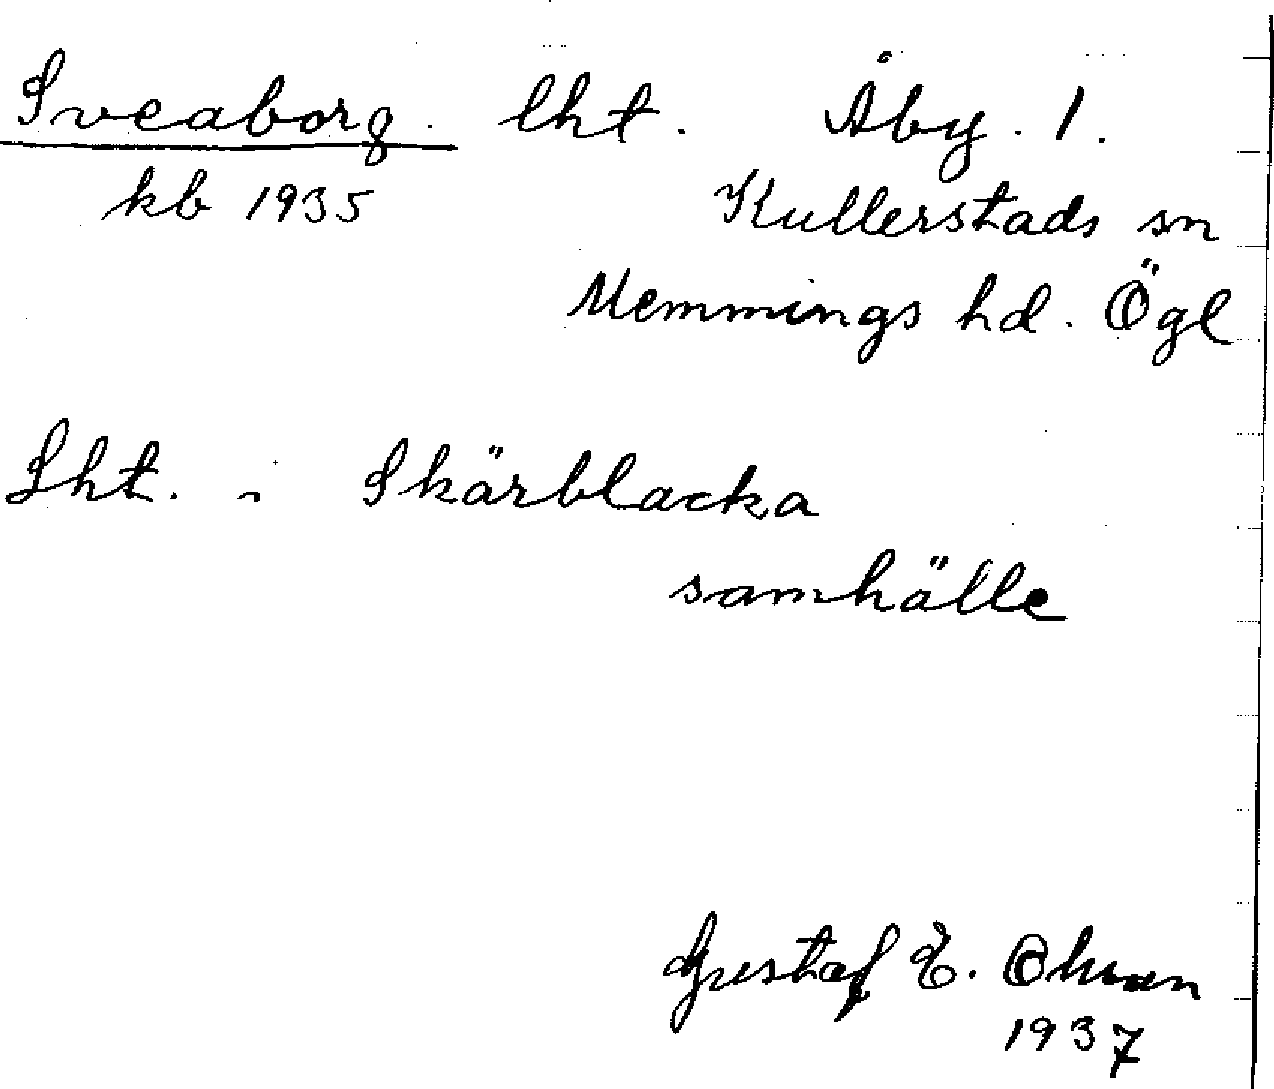 Sveaborg. lht. Åby. 1.
kb 1935 Kullerstads sn
Memmings hd. Ögl
Lht. i Skärblacka
samhälle
Gustaf E.
1937